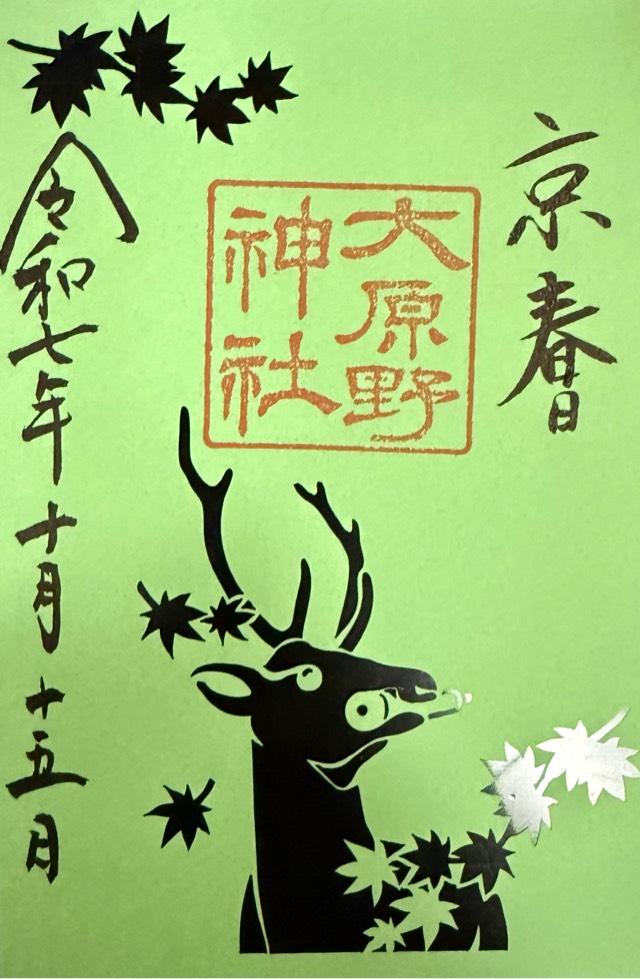 京春日
大原野
神社
令和七年十月十五日